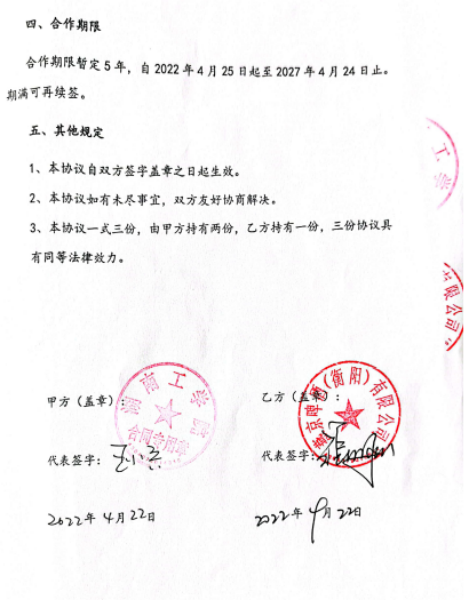 四、合作期限
合作期限暂定5年，自2022年4月25日起至2027年4月24日止。
期满可再续签。
五、其他规定
1、本协议自双方签字盖章之日起生效。
2、本协议如有未尽事宜，双方友好协商解决。
3、本协议一式三份，由甲方持有两份，乙方持有一份，三份协议具
有同等法律效力。
工学
有限公司
甲方（盖章）：
湖南工学院
合同专用章
代表签字：
2022年4月22日
乙方（盖章）：
（衡阳）有限公司
代表签字：
2022年4月22日